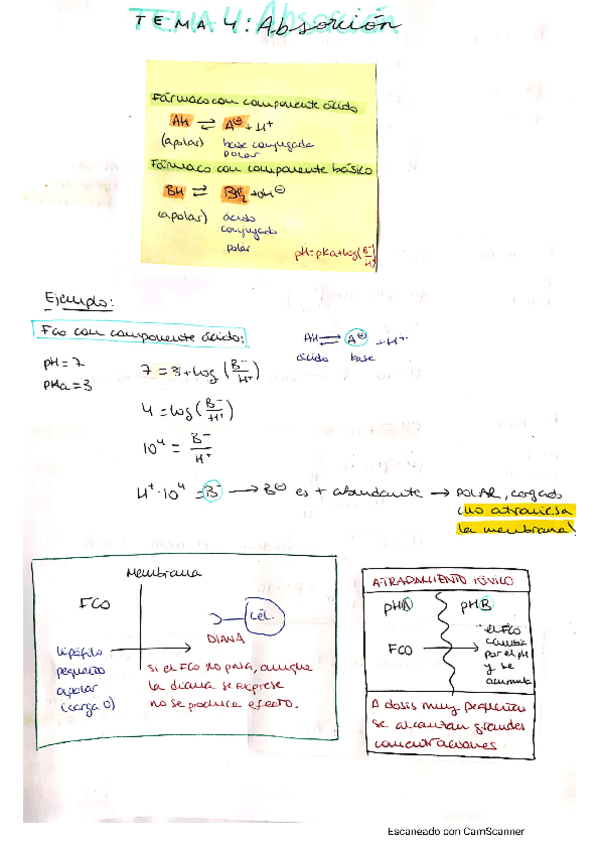 TEMA 4: Absorción
Fármaco con componente ácido
AH ⇌ A⊖ + H+
(apolar) base conjugada
polar
Fármaco con componente básico
BH ⇌ BH2+ + OH⊖
(apolar) ácido
conjugado
polar
pH=pKa+log(B-/H+)
Ejemplo:
Fco con componente ácido:
AH ⇌ A⊖ + H+
ácido base
pH=7
pKa=3
7 = 3+log (B-/H+)
4 = log (B-/H+)
10^4 = B-/H+
H+·10^4 = B- → B⊖ es + abundante → POLAR, cargado
¡no atraviesa
la membrana!
Membrana
FCO
Cél.
DIANA
lipófilo
pequeño
apolar
(carga 0)
Si el FCO no pasa, aunque
la diana se exprese
no se produce efecto.
ATRAPAMIENTO IÓNICO
pHA pHB
FCO
el Fco
cambia
por el pH
y se
acumula
A dosis muy pequeñas
se alcanzan grandes
concentraciones
Escaneado con CamScanner